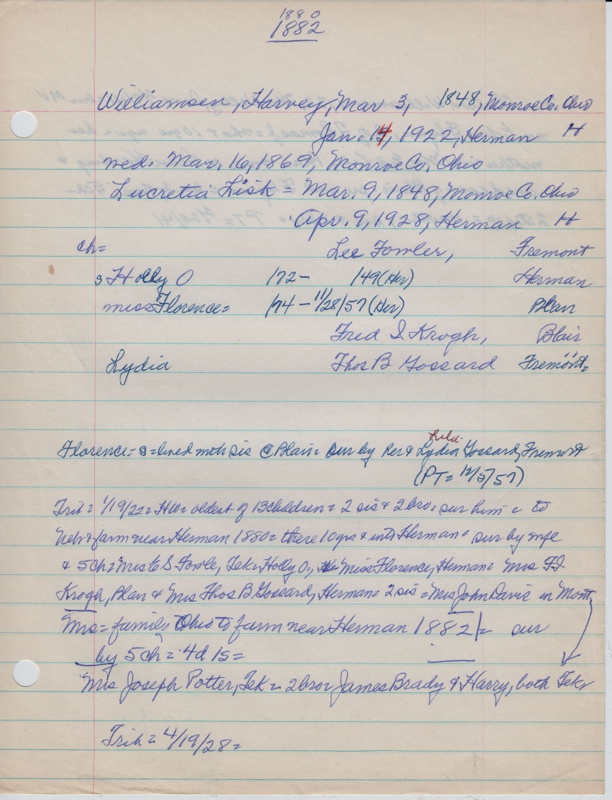 1880
1882
Williamsen, Harvey, Mar 3, 1848, Monroe Co. Ohio
Jan. 14, 1922, Herman H
wed. Mar. 16, 1869, Monroe Co. Ohio
Lucretia Lisk = Mar. 9, 1848, Monroe Co. Ohio
Apr. 9, 1928, Herman H
ch= Lee Fowler, Fremont
s Holly O 172- 149 (Her) Herman
miss Florence= 174- 11/28/57 (Her) Blair
Fred I. Krogh, Blair
Lydia Thos B Gossard Fremont=
Lula
Florence= s=lived with sis @ Blair= sur by Lydia Gossard, Fremont
(PT= 12/5/57)
Trib= 1/19/22= HW= oldest of 13 children= 2 sis & 2 bro. sur him= to
Neb & farm near Herman 1880= there 10 yrs & into Herman= sur by wife
& 5 ch= Mrs E S Fowle, Tek= Holly O., Miss Florence, Herman= Mrs F I
Krogh, Blair & Mrs Thos B. Gossard, Herman= 2 sis= Mrs John Davis in Mont
Mrs= family Ohio to farm near Herman 1882= sur
by 5 ch= 4d 1s=
Mrs Joseph Potter, Tek= 2 bro= James Brady & Harry, both Tek
Trib= 4/19/28=